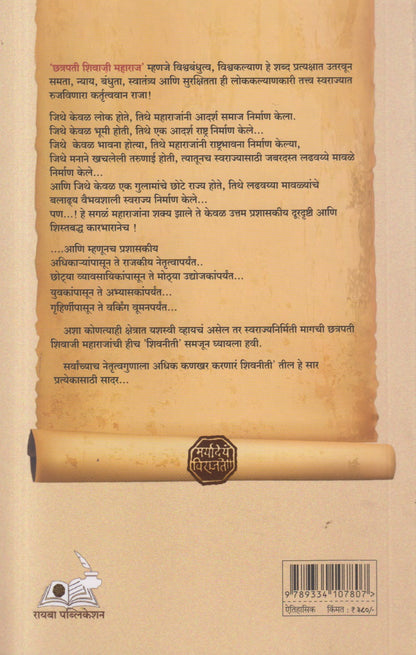 'छत्रपती शिवाजी महाराज' म्हणजे विश्वबंधुत्व, विश्वकल्याण हे शब्द प्रत्यक्षात उतरवून
समता, न्याय, बंधुता, स्वातंत्र्य आणि सुरक्षितता ही लोककल्याणकारी तत्त्व स्वराज्यात
रुजविणारा कर्तृत्ववान राजा!
जिथे केवळ लोक होते, तिथे महाराजांनी आदर्श समाज निर्माण केला.
जिथे केवळ भूमी होती, तिथे एक आदर्श राष्ट्र निर्माण केले...
जिथे केवळ भावना होत्या, तिथे महाराजांनी राष्ट्रभावना निर्माण केल्या,
जिथे मनाने खचलेली तरुणाई होती, त्यातूनच स्वराज्यासाठी जबरदस्त लढवय्ये मावळे
निर्माण केले...
आणि जिथे केवळ एक गुलामांचे छोटे राज्य होते, तिथे लढवय्या मावळ्यांचे
बलाढ्य वैभवशाली स्वराज्य निर्माण केले...
पण...! हे सगळं महाराजांना शक्य झाले ते केवळ उत्तम प्रशासकीय दूरदृष्टी आणि
शिस्तबद्ध कारभारानेच !
....आणि म्हणूनच प्रशासकीय
अधिकाऱ्यांपासून ते राजकीय नेतृत्वापर्यंत..
छोट्या व्यावसायिकांपासून ते मोठ्या उद्योजकांपर्यंत..
युवकांपासून ते अभ्यासकांपर्यंत..
गृहिणींपासून ते वर्किंग वूमनपर्यंत..
अशा कोणत्याही क्षेत्रात यशस्वी व्हायचं असेल तर स्वराज्यनिर्मिती मागची छत्रपती
शिवाजी महाराजांची हीच 'शिवनीती' समजून घ्यायला हवी.
सर्वांच्याच नेतृत्वगुणाला अधिक कणखर करणारं शिवनीती' तील हे सार
प्रत्येकासाठी सादर...
मर्यादेयं
विराजते
रायबा पब्लिकेशन
9 789334 107807
ऐतिहासिक किंमत : ₹ ३८०/-